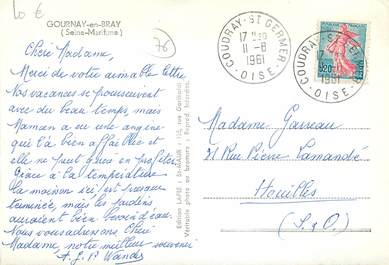 10 €
GOURNAY-en-BRAY
(Seine-Maritime)
76
Chère Madame,
Merci de votre aimable lettre
Nos vacances se poursuivent
avec du beau temps, mais
Maman a eu une angine
qui l'a bien affaiblie et
elle ne peut guère en profiter.
Grâce à la température
la maison ici est presque
terminée, mais les jardins
auraient bien besoin d'eau.
Nous vous adressons Chère
Madame, notre meilleur souvenir
Edition LAPIE : St-MAUR
Véritable photo au bromure
COUDRAY-ST GERMER
11-8
1961
OISE
COUDRAY-ST
1961
OISE
0,20
Madame Garreau
21 Rue Pierre
Houilles
(S & O)